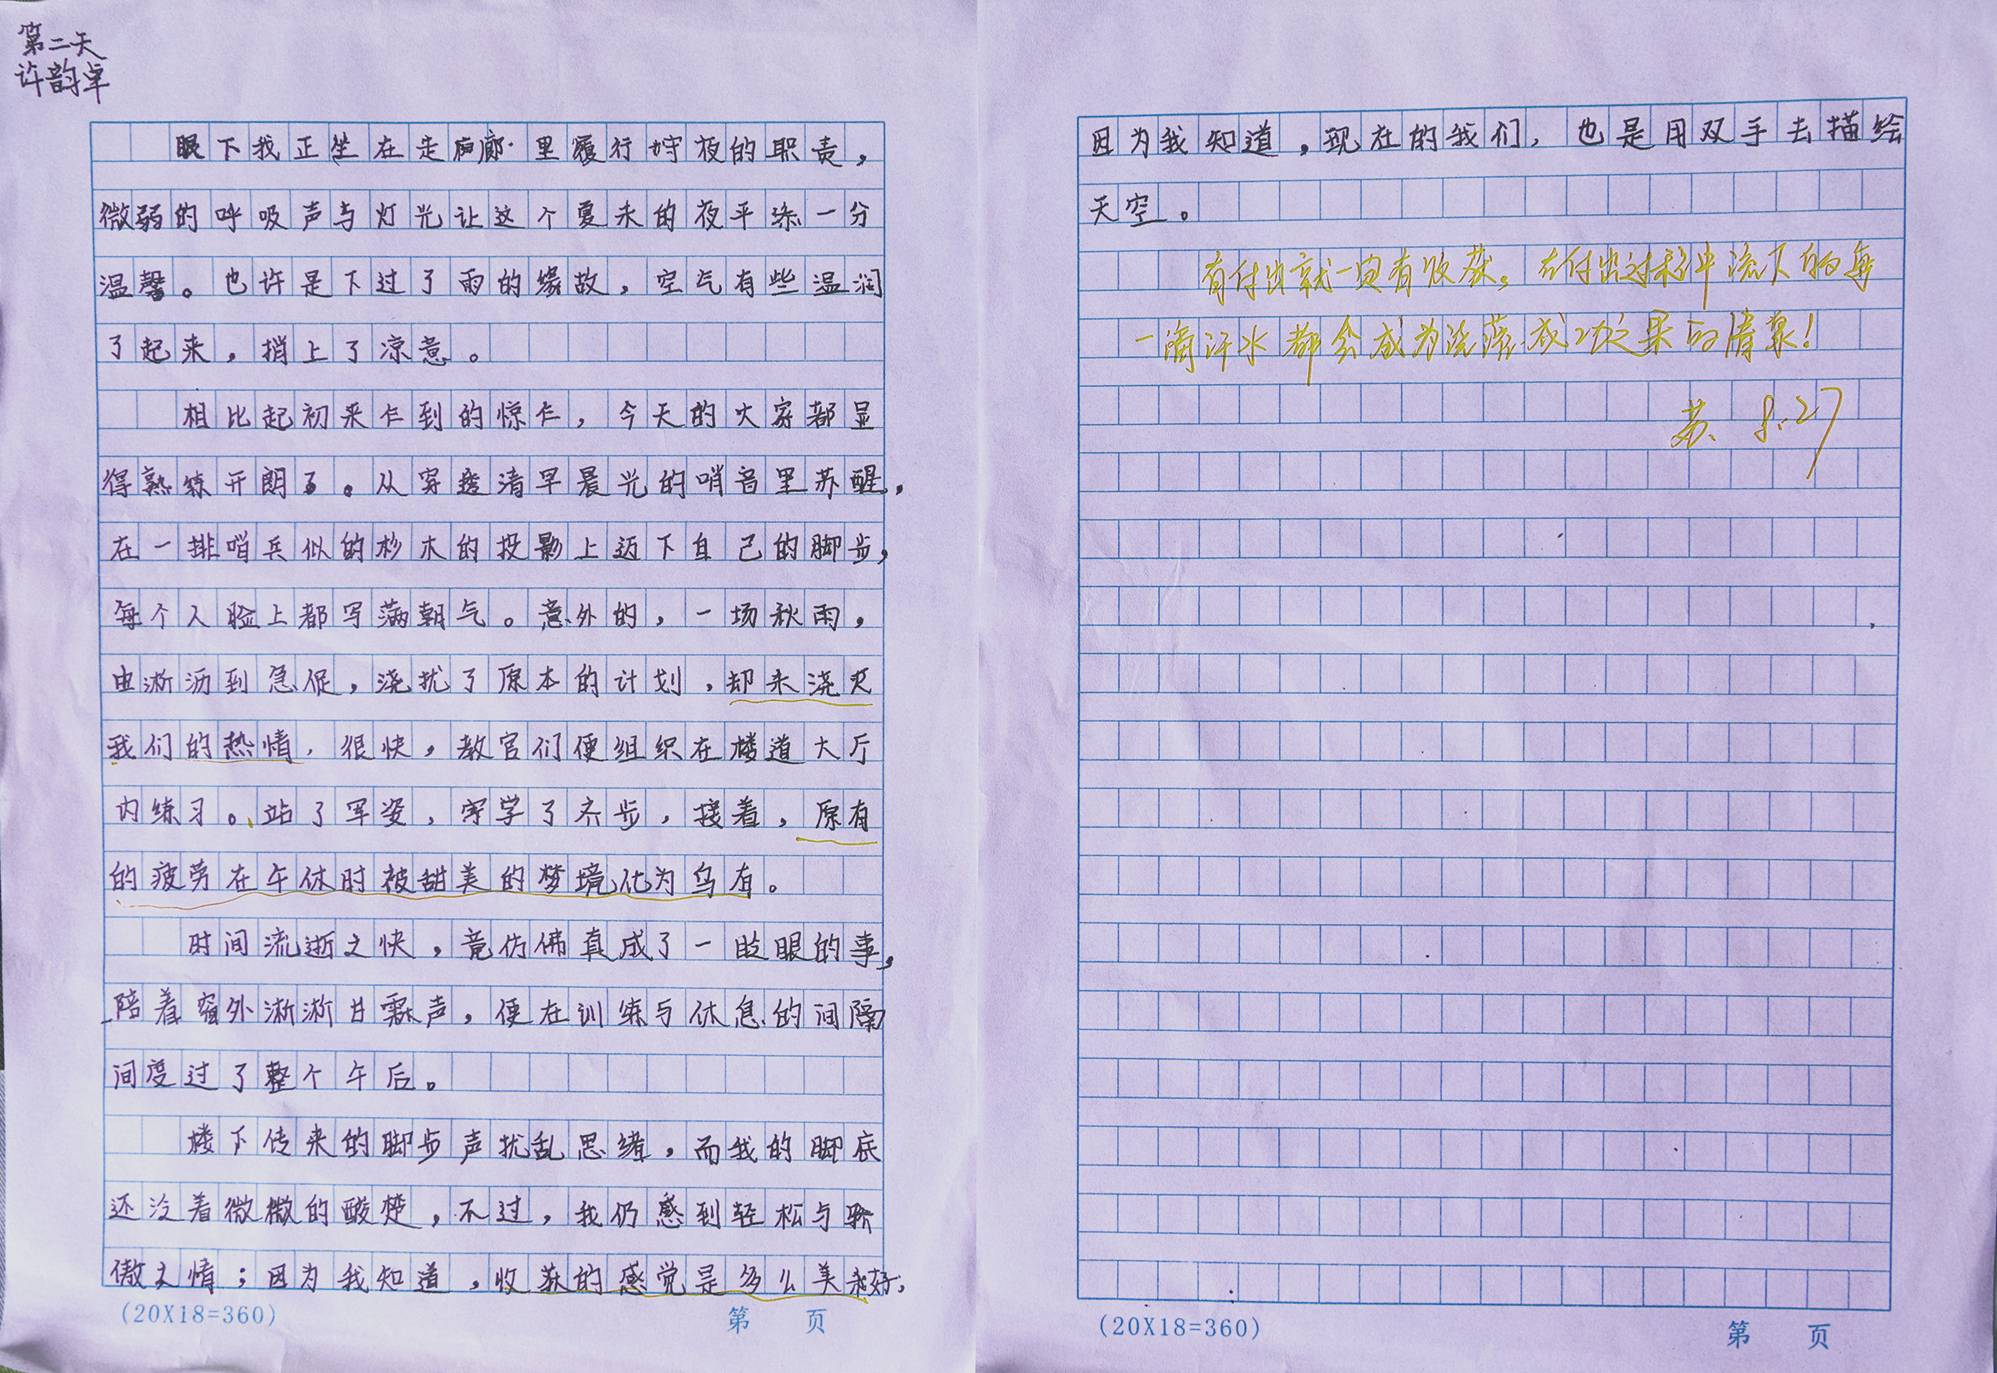 第二天
许韵卓
眼下我正坐在走廊里履行守夜的职责，
微弱的呼吸声与灯光让这个夏末的夜平添一分
温馨。也许是下过了雨的缘故，空气有些温润
了起来，捎上了凉意。
相比起初来乍到的惊乍，今天的大家都显
得熟练开朗了。从穿透清早晨光的哨音里苏醒，
在一排哨兵似的杉木的投影上迈下自己的脚步，
每个人脸上都写满朝气。意外的，一场秋雨，
由淅沥到急促，浇扰了原本的计划，却未浇灭
我们的热情，很快，教官们便组织在楼道大厅
内练习。站了军姿，学了齐步，接着，原有
的疲劳在午休时被甜美的梦境化为乌有。
时间流逝之快，竟仿佛真成了一眨眼的事，
陪着窗外淅淅甘霖声，便在训练与休息的间隔
间度过了整个午后。
楼下传来的脚步声扰乱思绪，而我的脚底
还泛着微微的酸楚，不过，我仍感到轻松与骄
傲之情；因为我知道，收获的感觉是多么美好；
(20X18=360)
第 页
因为我知道，现在的我们，也是用双手去描绘
天空。
有付出就一定有收获。在付出过程中流下的每
一滴汗水都会成为浇灌成功之果的清泉！
苏 8.27
(20X18=360)
第 页